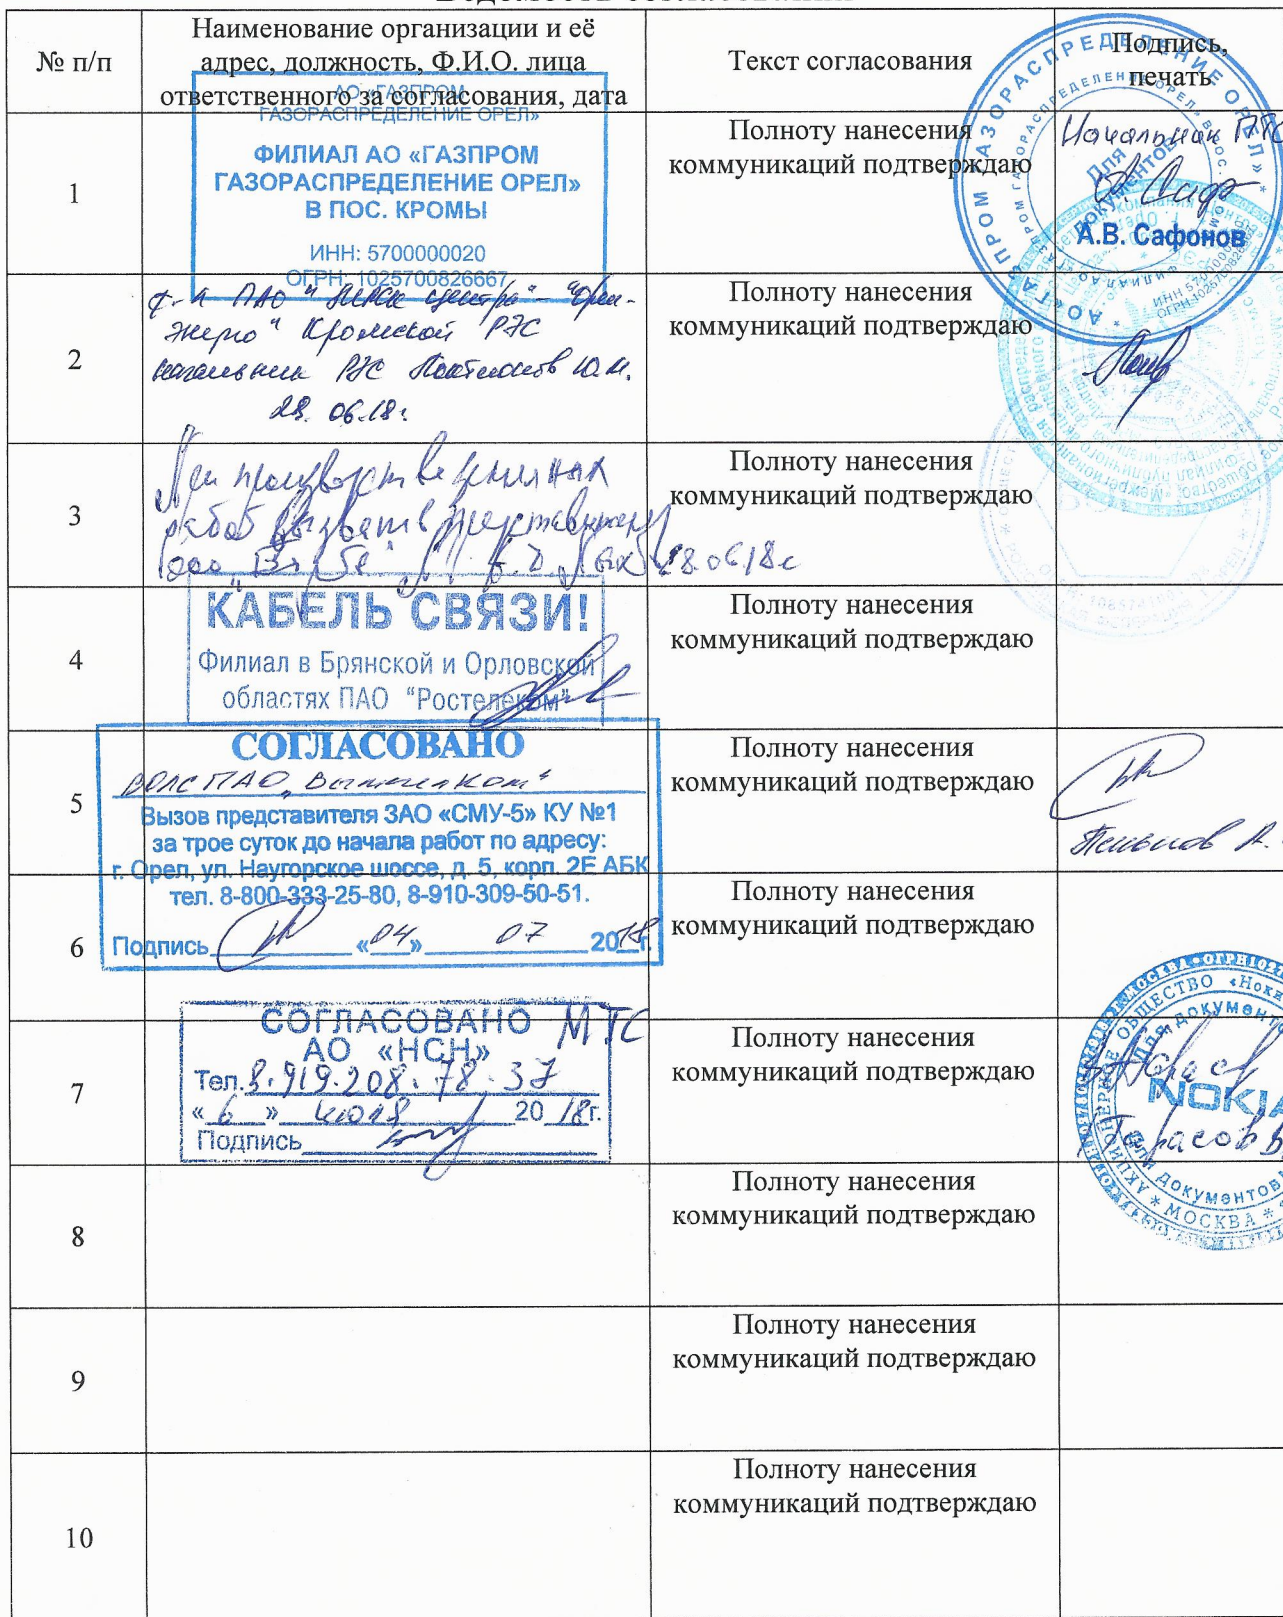 № п/п
Наименование организации и её
адрес, должность, Ф.И.О. лица
ответственного за согласования, дата
Текст согласования
Подпись,
печать
1
АО «ГАЗПРОМ
ГАЗОРАСПРЕДЕЛЕНИЕ ОРЕЛ»
ФИЛИАЛ АО «ГАЗПРОМ
ГАЗОРАСПРЕДЕЛЕНИЕ ОРЕЛ»
В ПОС. КРОМЫ
ИНН: 5700000020
ОГРН: 1025700826667
Полноту нанесения
коммуникаций подтверждаю
Начальник ПТС
Для
документов
А.В. Сафонов
2
ф-л ПАО "МРСК Центра" - "Орел-
энерго" Кромской РЭС
начальник РЭС Ю.М.
28.06.18г.
Полноту нанесения
коммуникаций подтверждаю
3
При производстве земляных
работ вызвать представителя
ООО
28.06.18г
Полноту нанесения
коммуникаций подтверждаю
4
КАБЕЛЬ СВЯЗИ!
Филиал в Брянской и Орловской
областях ПАО "Ростелеком"
Полноту нанесения
коммуникаций подтверждаю
5
СОГЛАСОВАНО
ВОЛС ПАО "Вымпелком"
Вызов представителя ЗАО «СМУ-5» КУ №1
за трое суток до начала работ по адресу:
г. Орел, ул. Наугорское шоссе, д. 5, корп. 2Е АБК
тел. 8-800-333-25-80, 8-910-309-50-51.
Подпись «04» 07 2018г.
Полноту нанесения
коммуникаций подтверждаю
6
Полноту нанесения
коммуникаций подтверждаю
7
СОГЛАСОВАНО МТС
АО «НСН»
Тел. 8.919.208.78.37
«6» июля 2018г.
Подпись
Полноту нанесения
коммуникаций подтверждаю
Для документов
NOKIA
Тарасов В
Для документов
* МОСКВА *
8
Полноту нанесения
коммуникаций подтверждаю
9
Полноту нанесения
коммуникаций подтверждаю
10
Полноту нанесения
коммуникаций подтверждаю